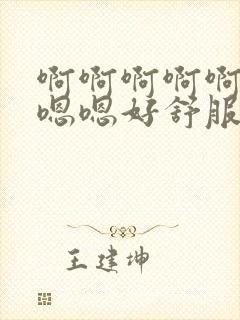 啊啊啊啊啊
嗯嗯好舒服
王建坤